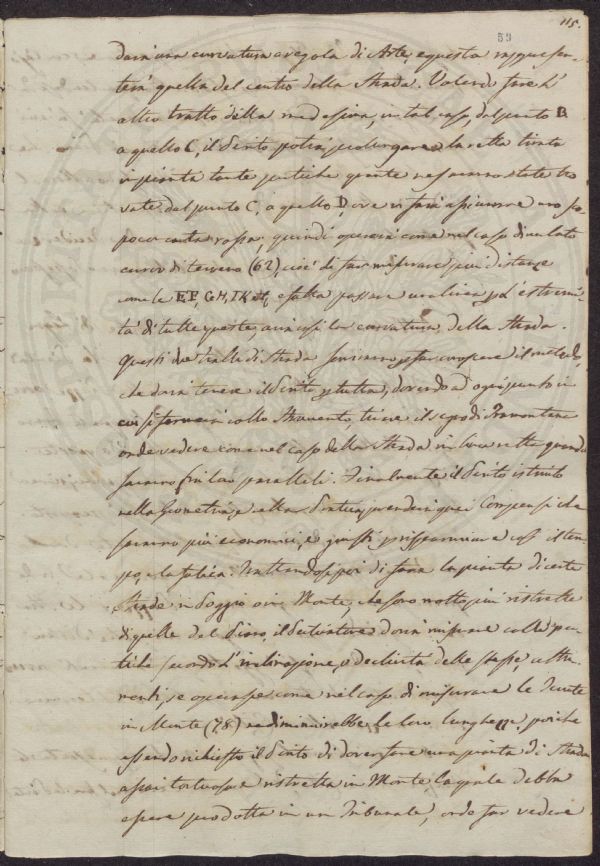 115.
59
darà una curvatura a regola di Arte, e questa rappresen-
terà quella del centro della Strada. Volendo fare l'
altro tratto della medesima, in tal caso, dal punto B
a quello C, il Perito potrà prolungare la retta tirata
in pianta tante pertiche quante ne saranno state tro
vate dal punto C, a quello D, ove vi farà assicurare uno sco
poco carta rossa, quindi opererà come nel caso di un lato
curvo di terreno (62), cioè di far misurare più distanze
come le EF, GH, IK et, e fatta passare una linea p l'estremi-
tà di tutte queste, avrà così la curvatura della Strada.
Questi due tratti di Strada serviranno p far conoscere il metodo,
che dovrà tenere il Perito p tutta, dovendo ad ogni punto in
cui si fermerà collo Strumento, tirare il segno di Tramontana
onde vedere come nel caso della Strada in linea retta quando
saranno fra loro paralleli. Finalmente il Perito istruito
nella Geometria, e nella Pratica, prenderà quei Compensi che
saranno più economici, e giusti p risparmiare così il tem-
po, e la fatica. Trattandosi poi di fare la pianta di certe
Strade in Poggio o in Monte, che sono molto più ristrette
di quelle del Piano, il Perito dovrà misurare colla per-
tica secondo l'inclinazione, o declività delle stesse, altri-
menti, se operasse come nel caso di misurare le Tenute
in Monte (78) ne diminuirebbe le loro lunghezze, poiché
essendo richiesto il Perito di dover fare una pianta di Strada
assai tortuosa e ristretta in Monte la quale debba
essere prodotta in un Tribunale, onde far vedere